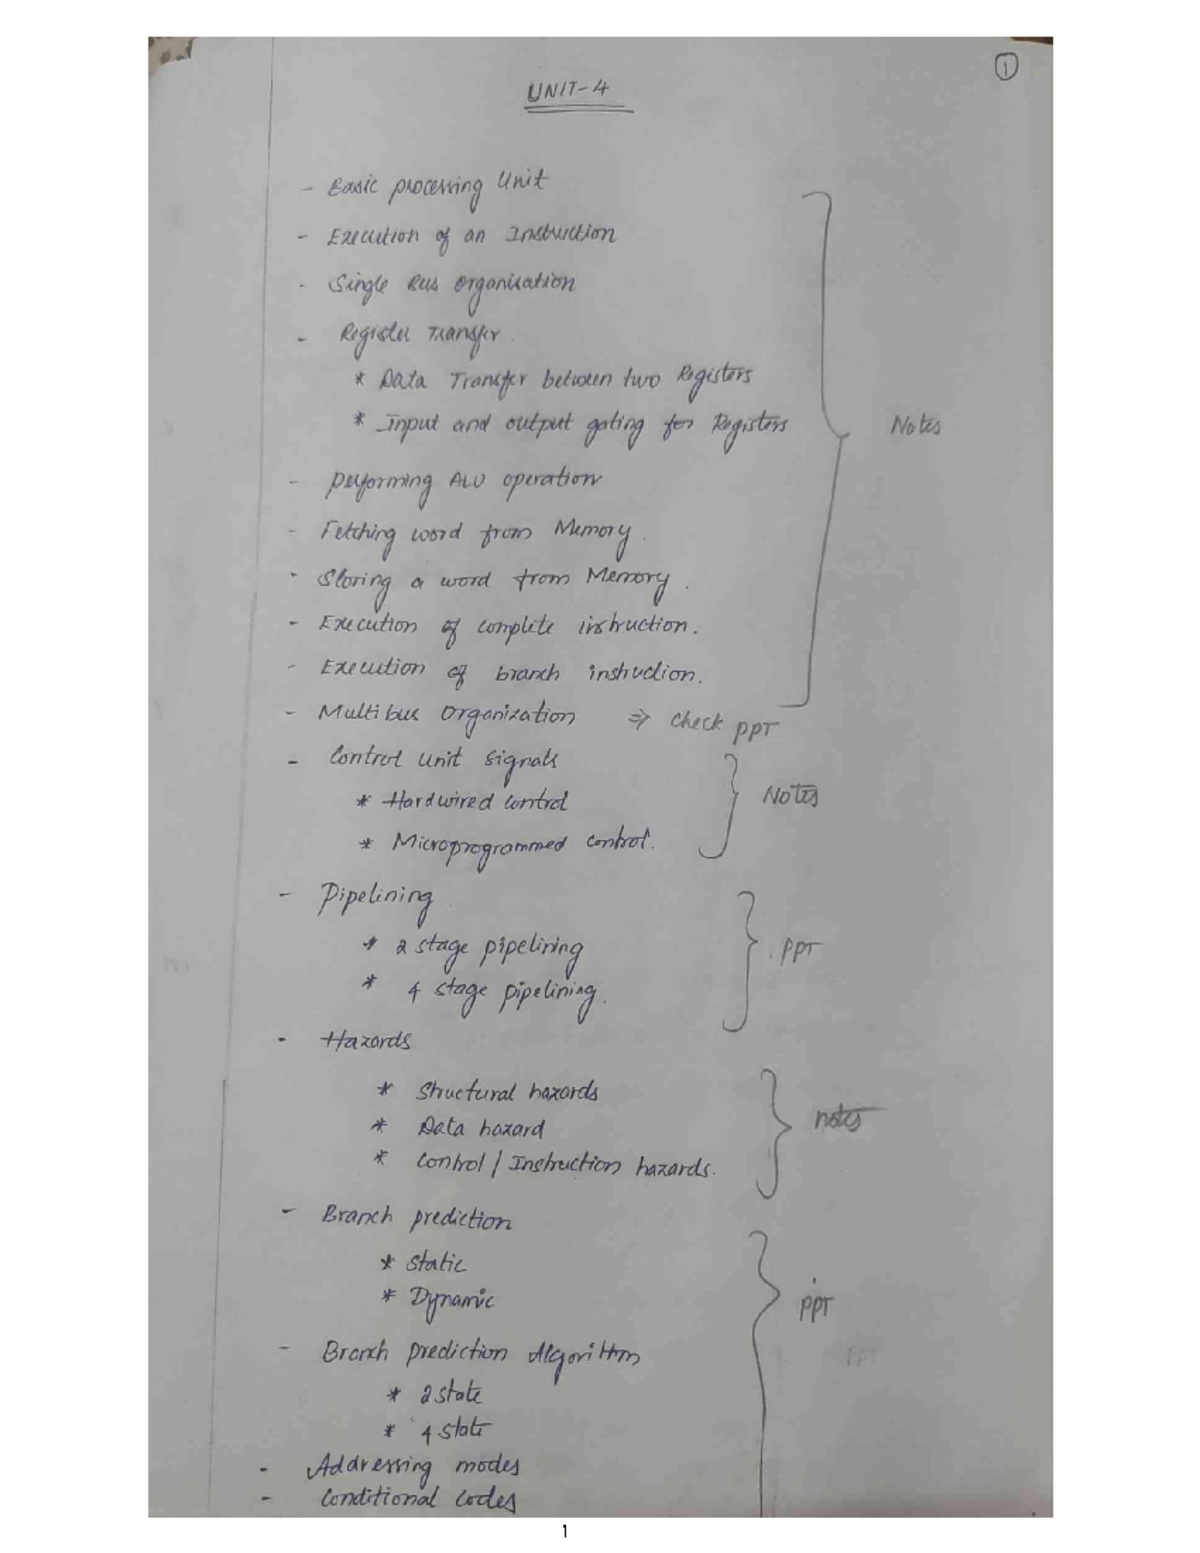 1
UNIT-4
- Basic processing Unit
- Execution of an Instruction
- Single Bus Organisation
- Register Transfer.
* Data Transfer between two Registers
* Input and output gating for Registers
Notes
- performing ALU operation
- Fetching word from Memory.
- Storing a word from Memory.
- Execution of complete instruction.
- Execution of branch instruction.
- Multibus Organization ⇒ check PPT
- Control unit signals
* Hardwired control
Notes
* Microprogrammed control.
- Pipelining
* 2 stage pipelining
PPT
* 4 stage pipelining.
- Hazards
* Structural hazards
* Data hazard
notes
* Control / Instruction hazards.
- Branch prediction
* Static
* Dynamic
PPT
- Branch prediction Algorithm
PPT
* 2 state
* 4 state
- Addressing modes
- Conditional codes
1